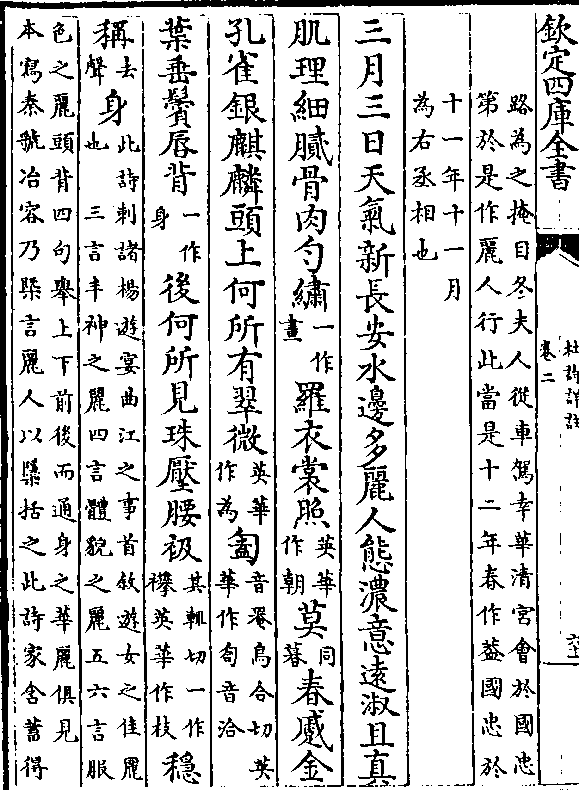 欽定四庫全書
杜詩詳註
卷二
路為之掩目冬夫人從車駕幸華清宮會於國忠
第於是作麗人行此當是十二年春作葢國忠於
十一年十一月
為右丞相也
三月三日天氣新長安水邊多麗人態濃意遠淑且真
肌理細膩骨肉勻繡一作畫羅衣裳照英華作朝莫同暮春蹙金
孔雀銀麒麟頭上何所有翠微英華作為㔩音罨烏合切英華作匌音洽
葉垂鬢脣背一作身後何所見珠壓腰衱其輒切一作襻英華作枝穩
稱去聲身此詩刺諸楊遊宴曲江之事首敘遊女之佳麗
也三言丰神之麗四言體貌之麗五六言服
色之麗頭背四句舉上下前後而通身之華麗俱見
本寫秦虢冶容乃槩言麗人以櫽括之此詩家含蓄得